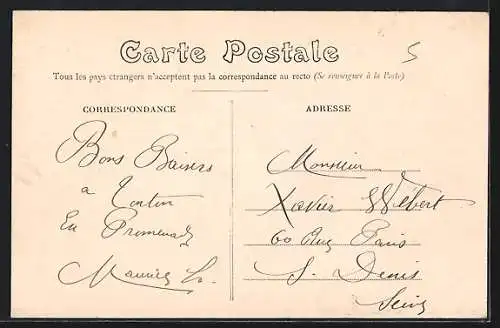 Carte Postale
5
Tous les pays étrangers n'acceptent pas la correspondance au recto (Se renseigner à la Poste)
CORRESPONDANCE
Bons Baisers
a Tonton
En Promenade
Maurice
ADRESSE
Monsieur
Xavier Wébert
60 Rue Paris
S. Denis
Seine